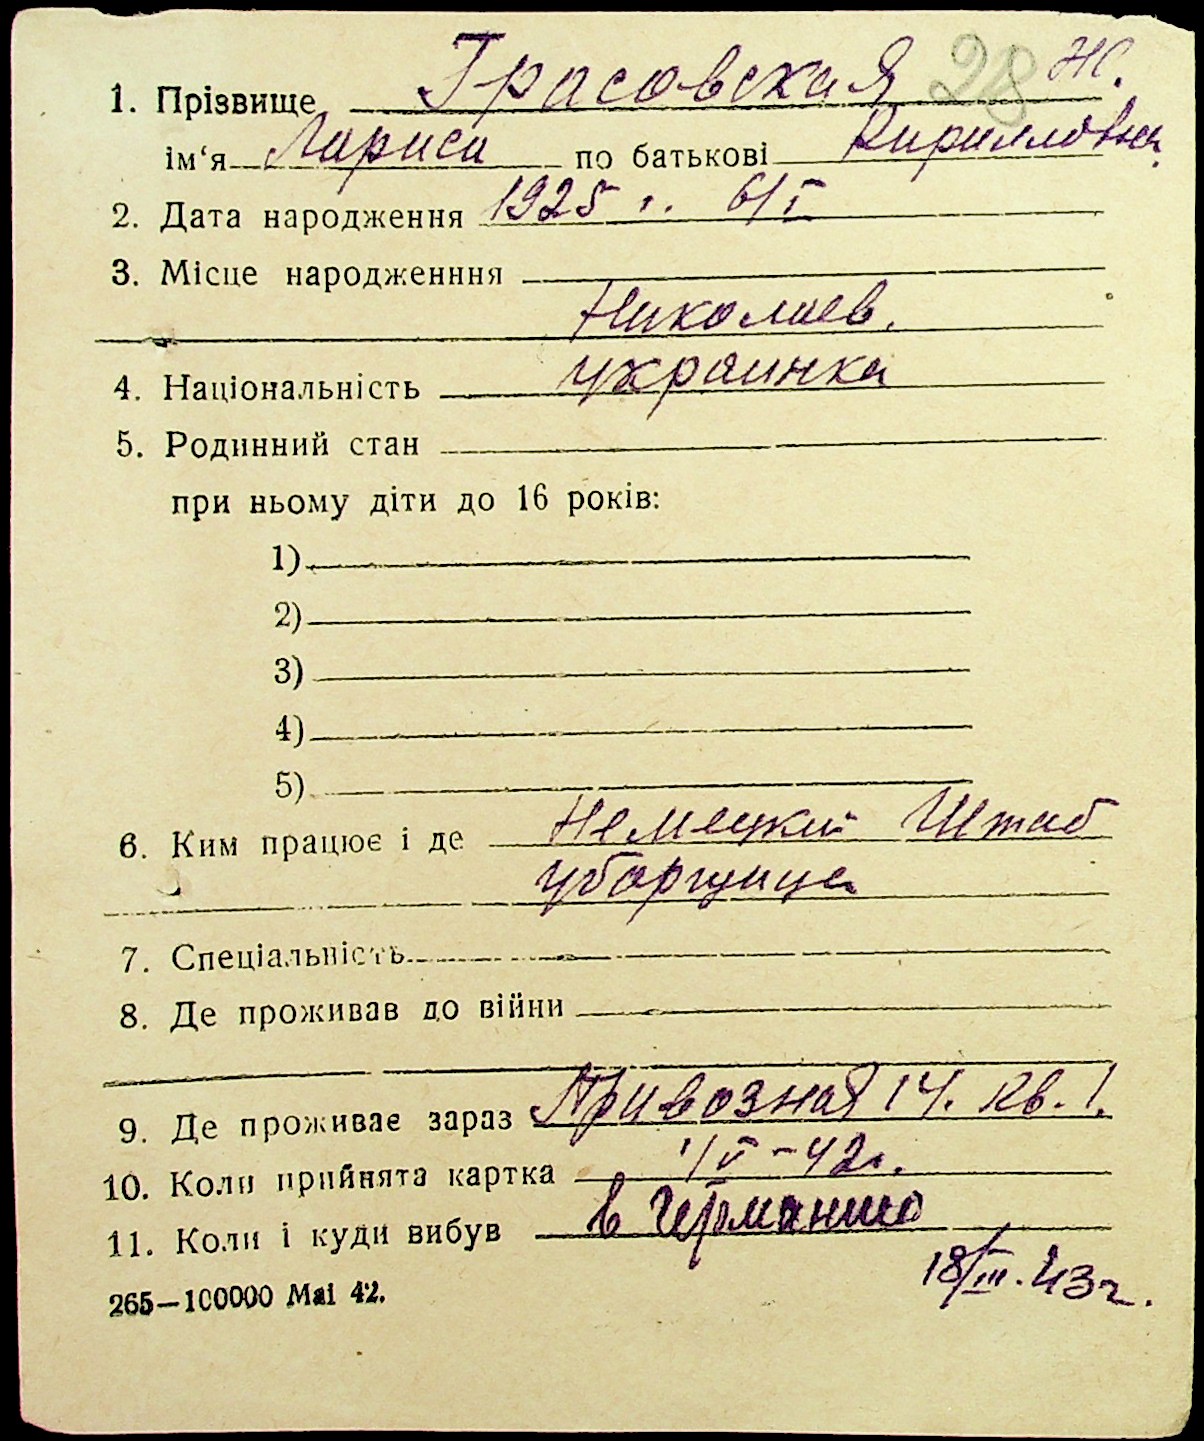 1. Прізвище Грасовская 28 Ж.
ім‘я Лариса по батькові Кирилловна
2. Дата народження 1925 г. 6/I
3. Місце народженння
Николаев.
4. Національність украинка
5. Родинний стан
при ньому діти до 16 років:
1)
2)
3)
4)
5)
6. Ким працює і де Немецкий Штаб
уборщица
7. Спеціальність
8. Де проживав до війни
9. Де проживає зараз Привозная 14. кв. 1.
10. Коли прийнята картка 1/V - 42г.
11. Коли і куди вибув в Германию
18/III. 43г.
265—100000 Mai 42.